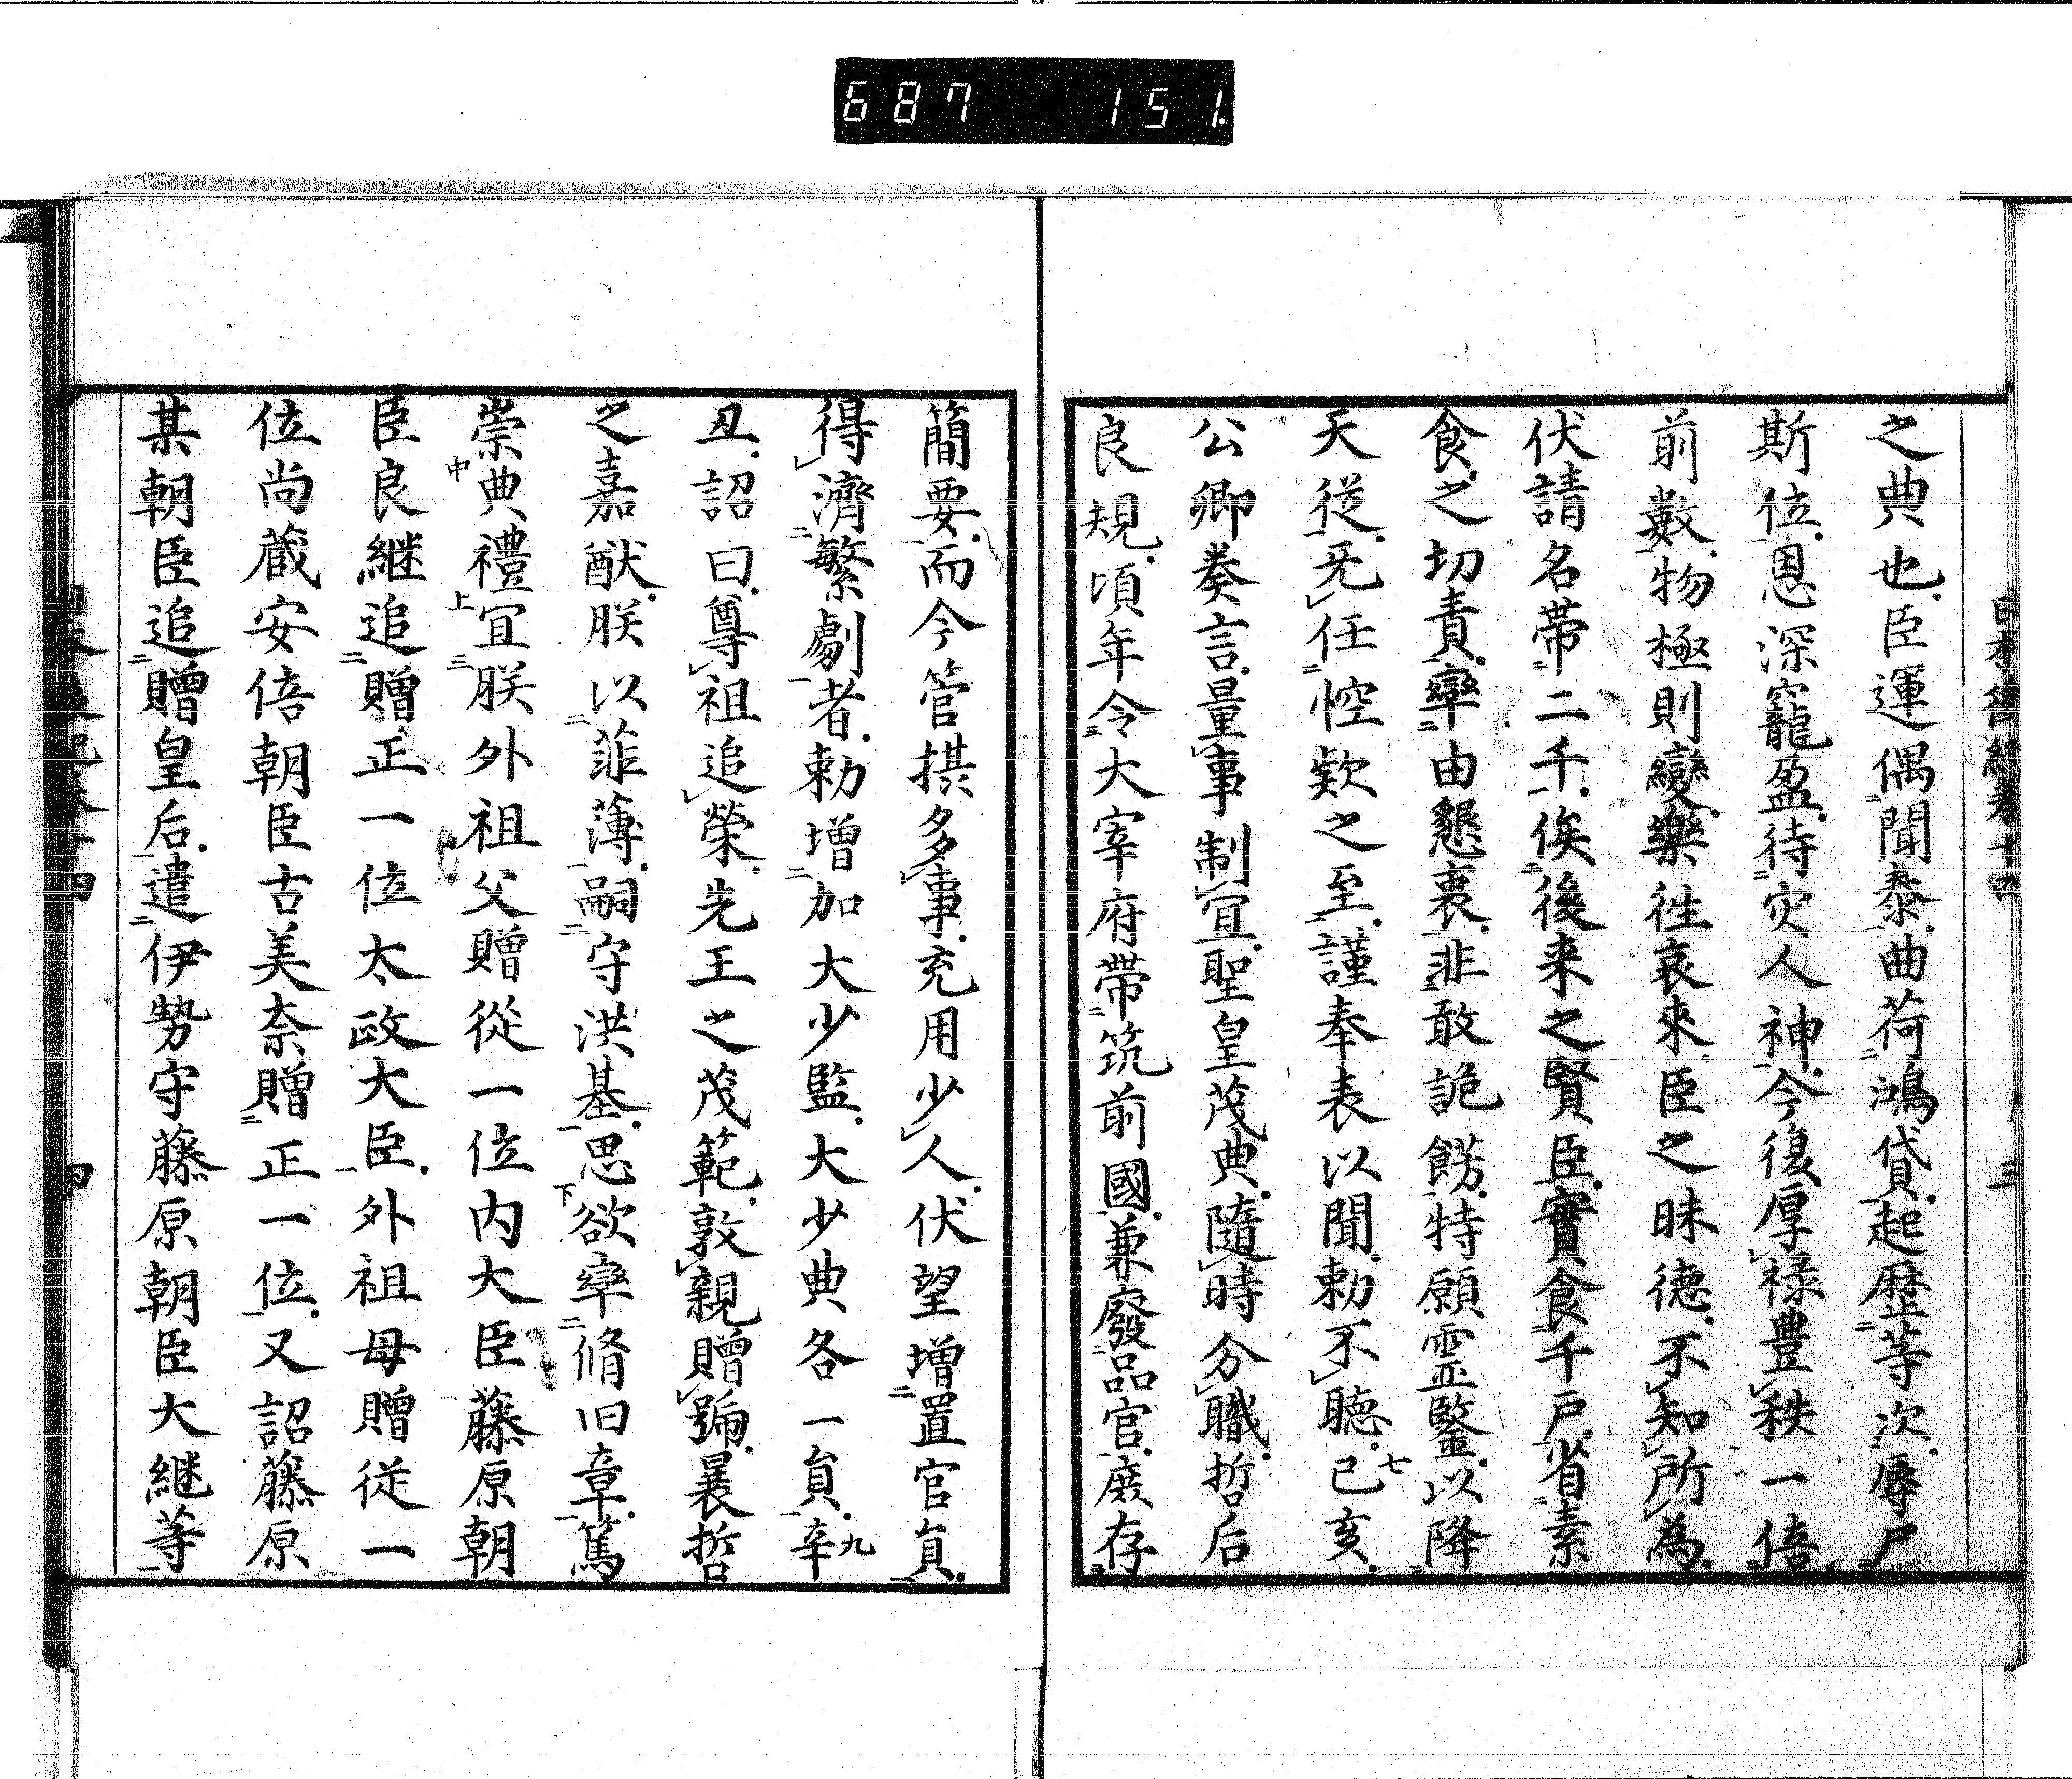 687 151.
之典也臣運偶聞泰曲荷鴻貸起歴等次辱尸
斯位恩深寵盈待灾人神今復厚禄豊秩一倍
前數物極則變樂徃哀來臣之昧徳不知所為
伏請名帯二千俟後来之賢臣實食千戸省素
食之切責率由懇衷非敢詭餝特願霊鑒以降
天従旡任悾欵之至謹奉表以聞勅不聴已亥七
公卿奏言量事制宜聖皇茂典随時分職哲后
良規頃年令大宰府帯筑前國兼廢品官廃存
簡要而今管㧓多事充用少人伏望増置官貟
得濟繁劇者勅増加大少監大少典各一貟辛九
丑詔曰尊祖追榮先王之茂範敦親贈號曩哲
之嘉猷朕以菲薄嗣守洪基思欲率脩旧章篤
崇典禮宜朕外祖父贈從一位内大臣藤原朝
臣良継追贈正一位太政大臣外祖母贈従一
位尚蔵安倍朝臣古美奈贈正一位又詔藤原
某朝臣追贈皇后遣伊勢守藤原朝臣大継等